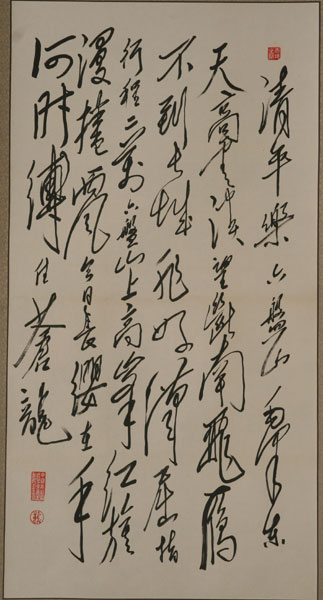 清平樂 六盤山 毛澤東
天高雲淡望斷南飛雁
不到長城非好漢屈指
行程二萬六盤山上高峰紅旗
漫捲西風今日長纓在手
何時縛住蒼龍